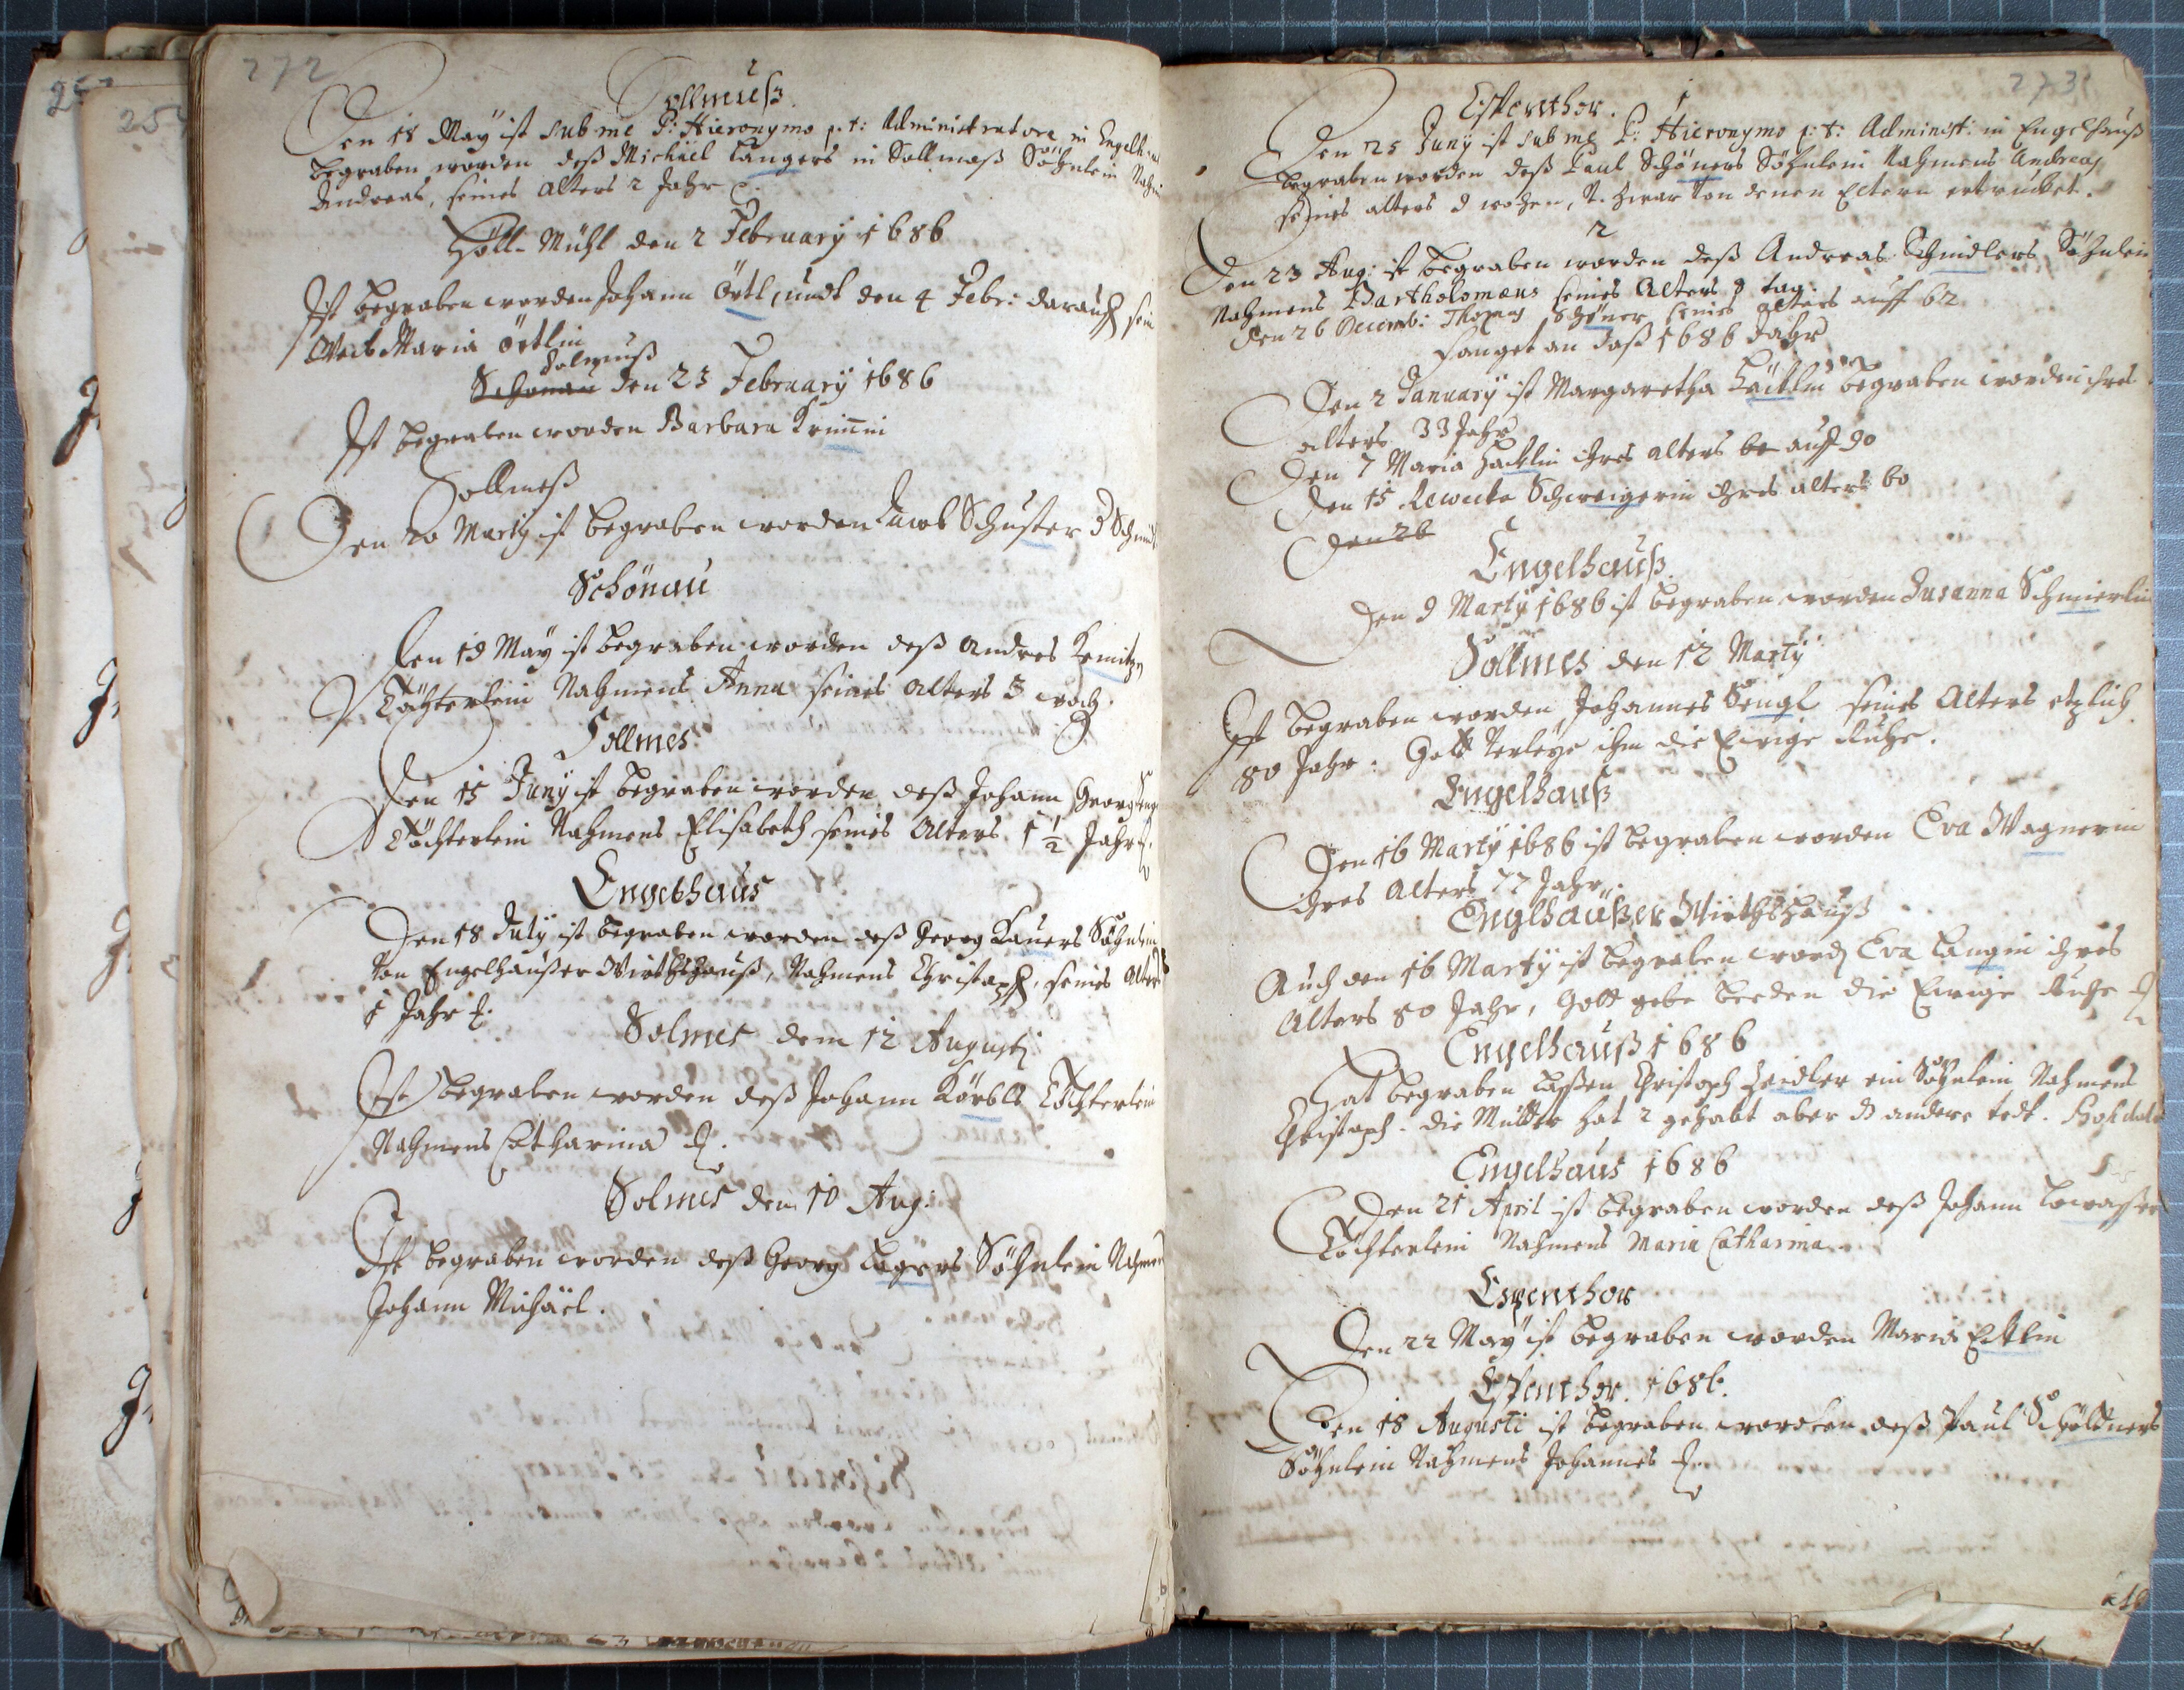 272
Sollmueß.
Den 18 May ist sub me P: Hieronymo p. t: Administratore in
begraben worden deß Michael Langers in Sollmeß Söhnlein
Andreas, seines alters 2 Jahr
Höll-Mühl den 2 February 1686
Ist begraben worden Johann Örtl, undt den 4 Febr: darauff sein
Weib Maria Örtlin
Solmuß
Schönau den 23 February 1686
Ist begraben worden Barbara
Sollmeß
Den 20 Marty ist begraben worden Jacob Schuster
Schönau
Den 19 May ist begraben worden deß Andres
Töchterlein Nahmens Anna seines alters 3 woch.
Sollmes
Den 15 Juny ist begraben worden deß Johann Georg
Töchterlein Nahmens Elisabeth seines Alters 1 1/2 Jahr
Engelshaus
Den 18 July ist begraben worden deß Georg Bauers Söhnlein
Von Engelhaußer Wirthshauß, Nahmens Christoph, seines Alters
1 Jahr
Solmes dem 12 Augusti
Ist begraben worden deß Johann Körbls Töchterlein
Nahmens Catharina
Solmes den 10 Aug:
Ist begraben worden deß Georg Söhnlein
Johann Michäel.
273
Espenthor. 1
Den 25 Juny ist sub me P: Hieronymo p: t: Administ: in Engelhauß
begraben worden deß Paul Schöners Söhnlein Nahmens Andreas
seines alters 9 wochen, zwar Von denen Eltern
2
Den 23 Aug: ist begraben worden deß Andreas Schindlers Söhnlein
Nahmens Bartholomæus seines Alters 8 tag.
Den 26 Decemb: Thomas Schöner seines alters auff 62
Fanget an daß 1686 Jahr
Den 2 January ist Margaretha begraben worden ihres
alters 33 Jahr
Den 7 Maria Hacklin ihres alters auff 90
Den 15 Schweigerin ihres alters 60
Den 26
Engelhauß
Den 9 Marty 1686 ist begraben worden Susanna Schmierlin
Sollmes den 12 Marty
Ist begraben worden Johannes Sengl seines Alters etzlich
80 Jahr. Gott Verleye ihm die Ewige Ruhe.
Engelhauß
Den 16 Marty 1686 ist begraben worden Eva Wagnerin
ihres Alters 77 Jahr.
Englhaußer Wirthshauß
Auch den 16 Marty ist begraben word Eva Langin ihres
Alters 80 Jahr, Gott gebe beeden die Ewige Ruhe
Engelhauß 1686
Hat begraben lassen Christoph Zeidler ein Söhnlein Nahmens
Christoph. die Mutter hat 2 gehabt aber andere todt.
Engelhaus 1686
Den 21 April ist begraben worden deß Johann
Töchterlein Nahmens Maria Catharina.
Espenthor
Den 22 May ist begraben worden Maria
Espenthor. 1686.
Den 18 Augusti ist begraben worden deß Paul Schöldners
Söhnlein Nahmens Johannes